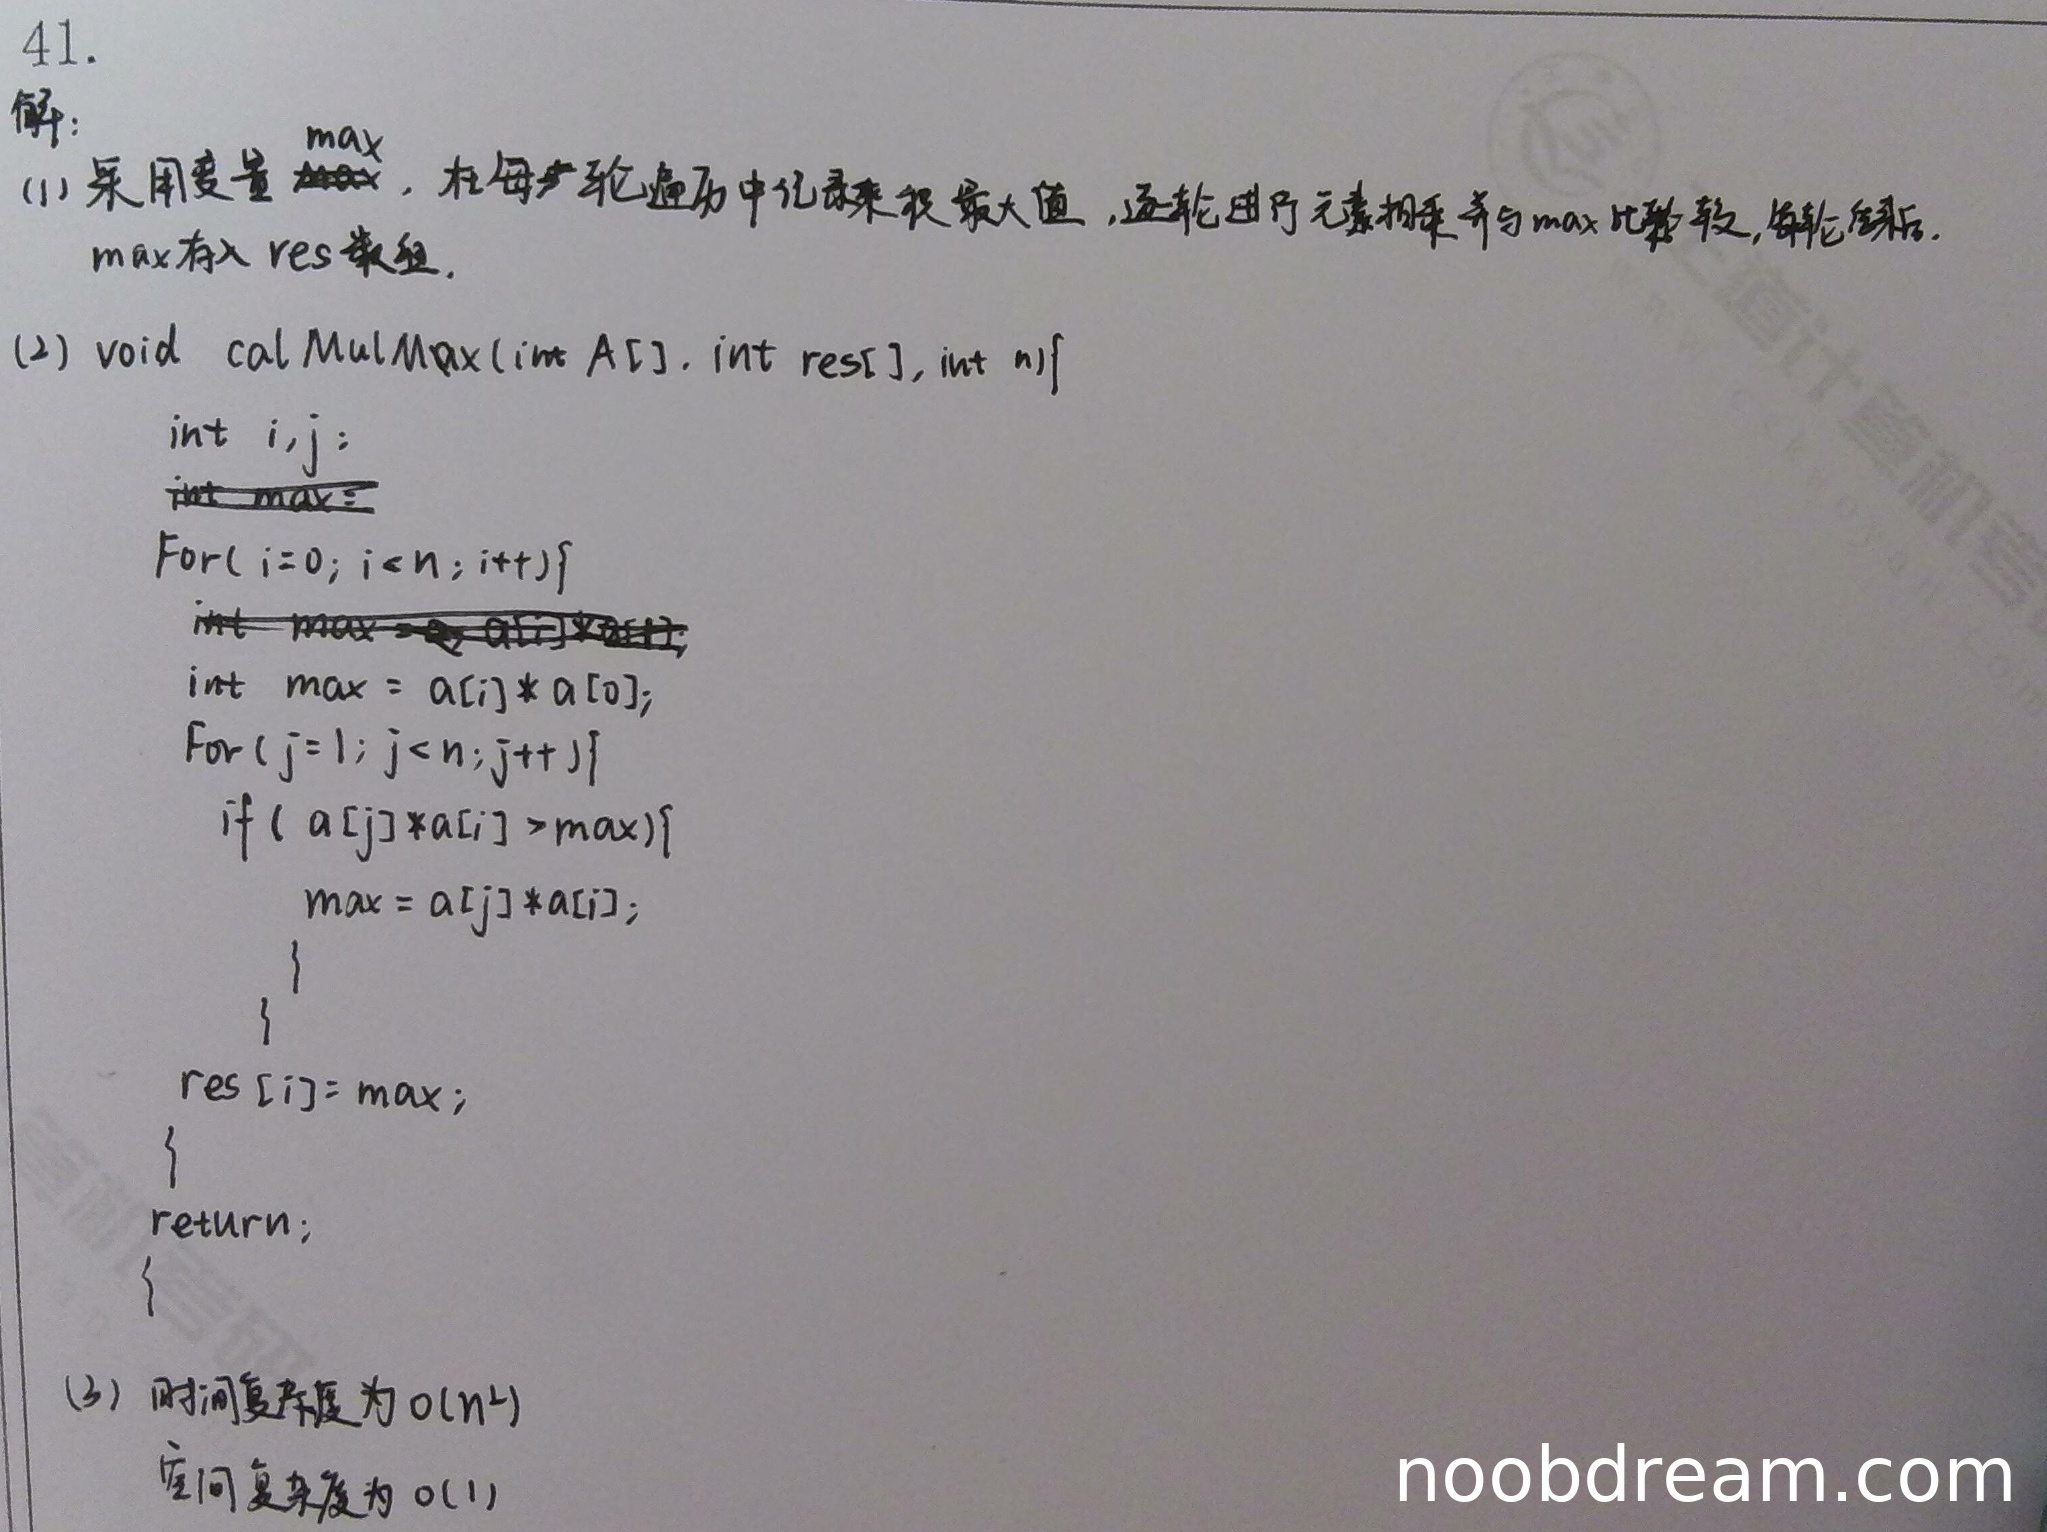 41.
解:
max
(1) 采用变量 , 在每轮遍历中记录乘积最大值,逐轮进行元素相乘并与max比较,每轮结束后.
max存入 res 数组.
(2) void calMulMax(int A[]. int res[], int n){
int i,j;
int max=
For( i=0; i<n; i++){
int max = a[i]*
int max = a[i]*a[0];
For(j=1; j<n; j++){
if( a[j]*a[i] >max){
max = a[j]*a[i];
}
}
res[i]=max;
{
return;
{
(3) 时间复杂度为 O(n²)
空间复杂度为 O(1)
王道计算机考研
算机考研
noobdream.com